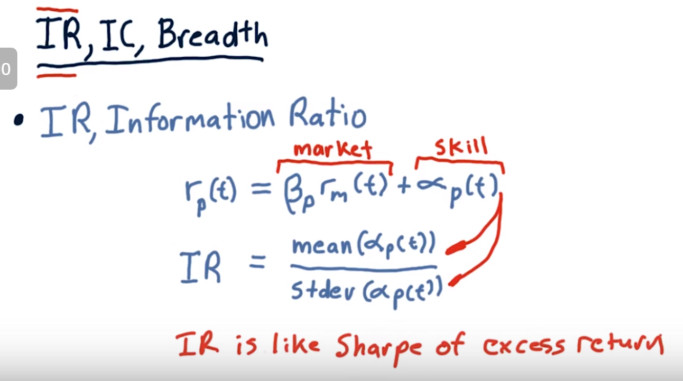 0
IR, IC, Breadth
• IR, Information Ratio
market skill
rₚ(t) = βₚ rₘ(t) + αₚ(t)
IR = mean(αₚ(t)) / stdev(αₚ(t))
IR is like Sharpe of excess return